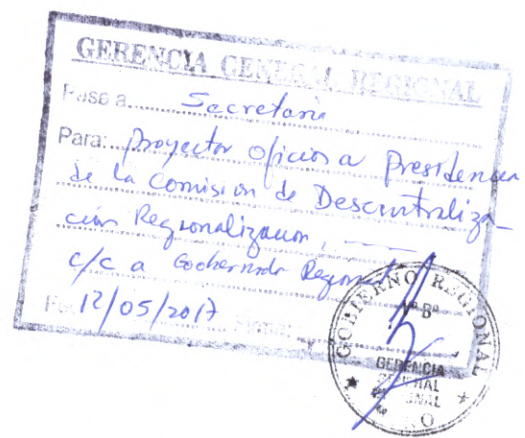 GERENCIA GENERAL REGIONAL
Pase a Secretaria
Para: Proyectar Oficios a Presidencia
de la Comisión de Descentraliza-
ción Regionalización,
c/c a Gobernador Regional
12/05/2017
GOBIERNO REGIONAL
VºBº
GERENCIA
GENERAL
REGIONAL